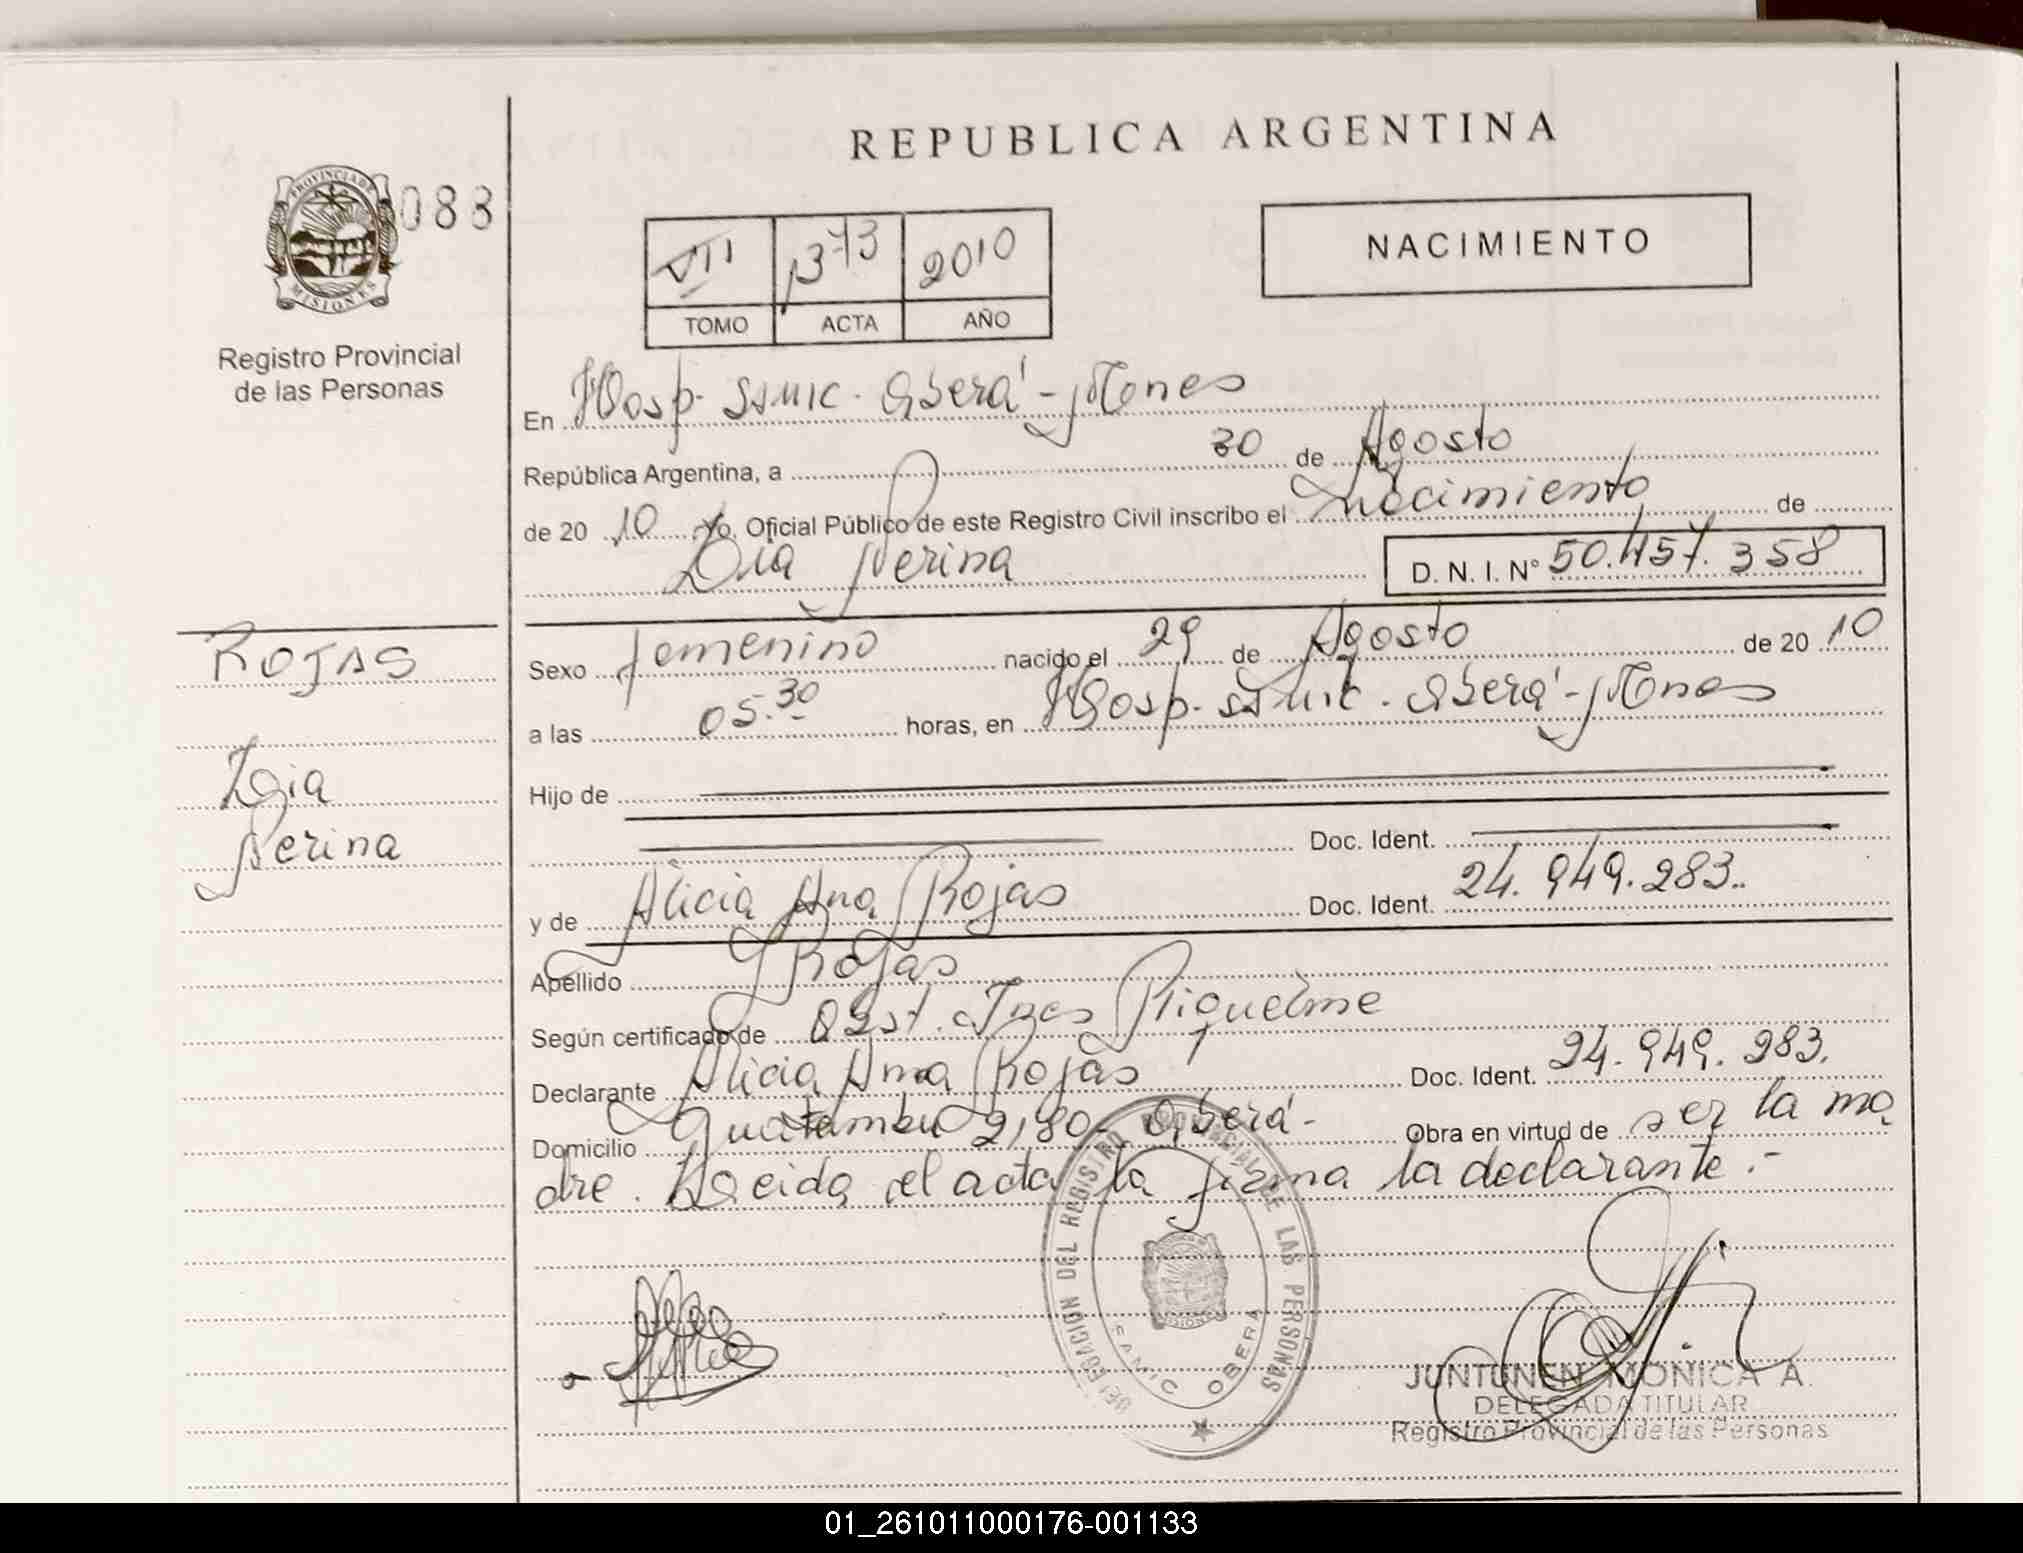 REPUBLICA ARGENTINA
PROVINCIA DE
MISIONES
088
Registro Provincial
de las Personas
VII 1373 2010
TOMO ACTA AÑO
NACIMIENTO
En Hosp. SAMIC. Oberá - Mnes
República Argentina, a 30 de Agosto
de 20 10 Yo, Oficial Público de este Registro Civil inscribo el nacimiento de
Nerina
D. N. I. Nº 50.457.358
ROJAS
Nerina
Sexo femenino nacido el 29 de Agosto de 20 10
a las 05.30 horas, en Hosp. SAMIC. Oberá - Mnes
Hijo de
Doc. Ident.
y de Alicia Ana Rojas Doc. Ident. 24.949.283.
Apellido Rojas
Según certificado de Obst. Ines Riquelme
Declarante Alicia Ana Rojas Doc. Ident. 24.949.283.
Domicilio Guatambu 2180 - Oberá - Obra en virtud de ser la ma
dre. Leida el acta la firma la declarante.-
DELEGACION DEL REGISTRO PROVINCIAL DE LAS PERSONAS
SAMIC OBERA
JUNTUNEN MONICA A.
DELEGADA TITULAR
Registro Provincial de las Personas
01_261011000176-001133